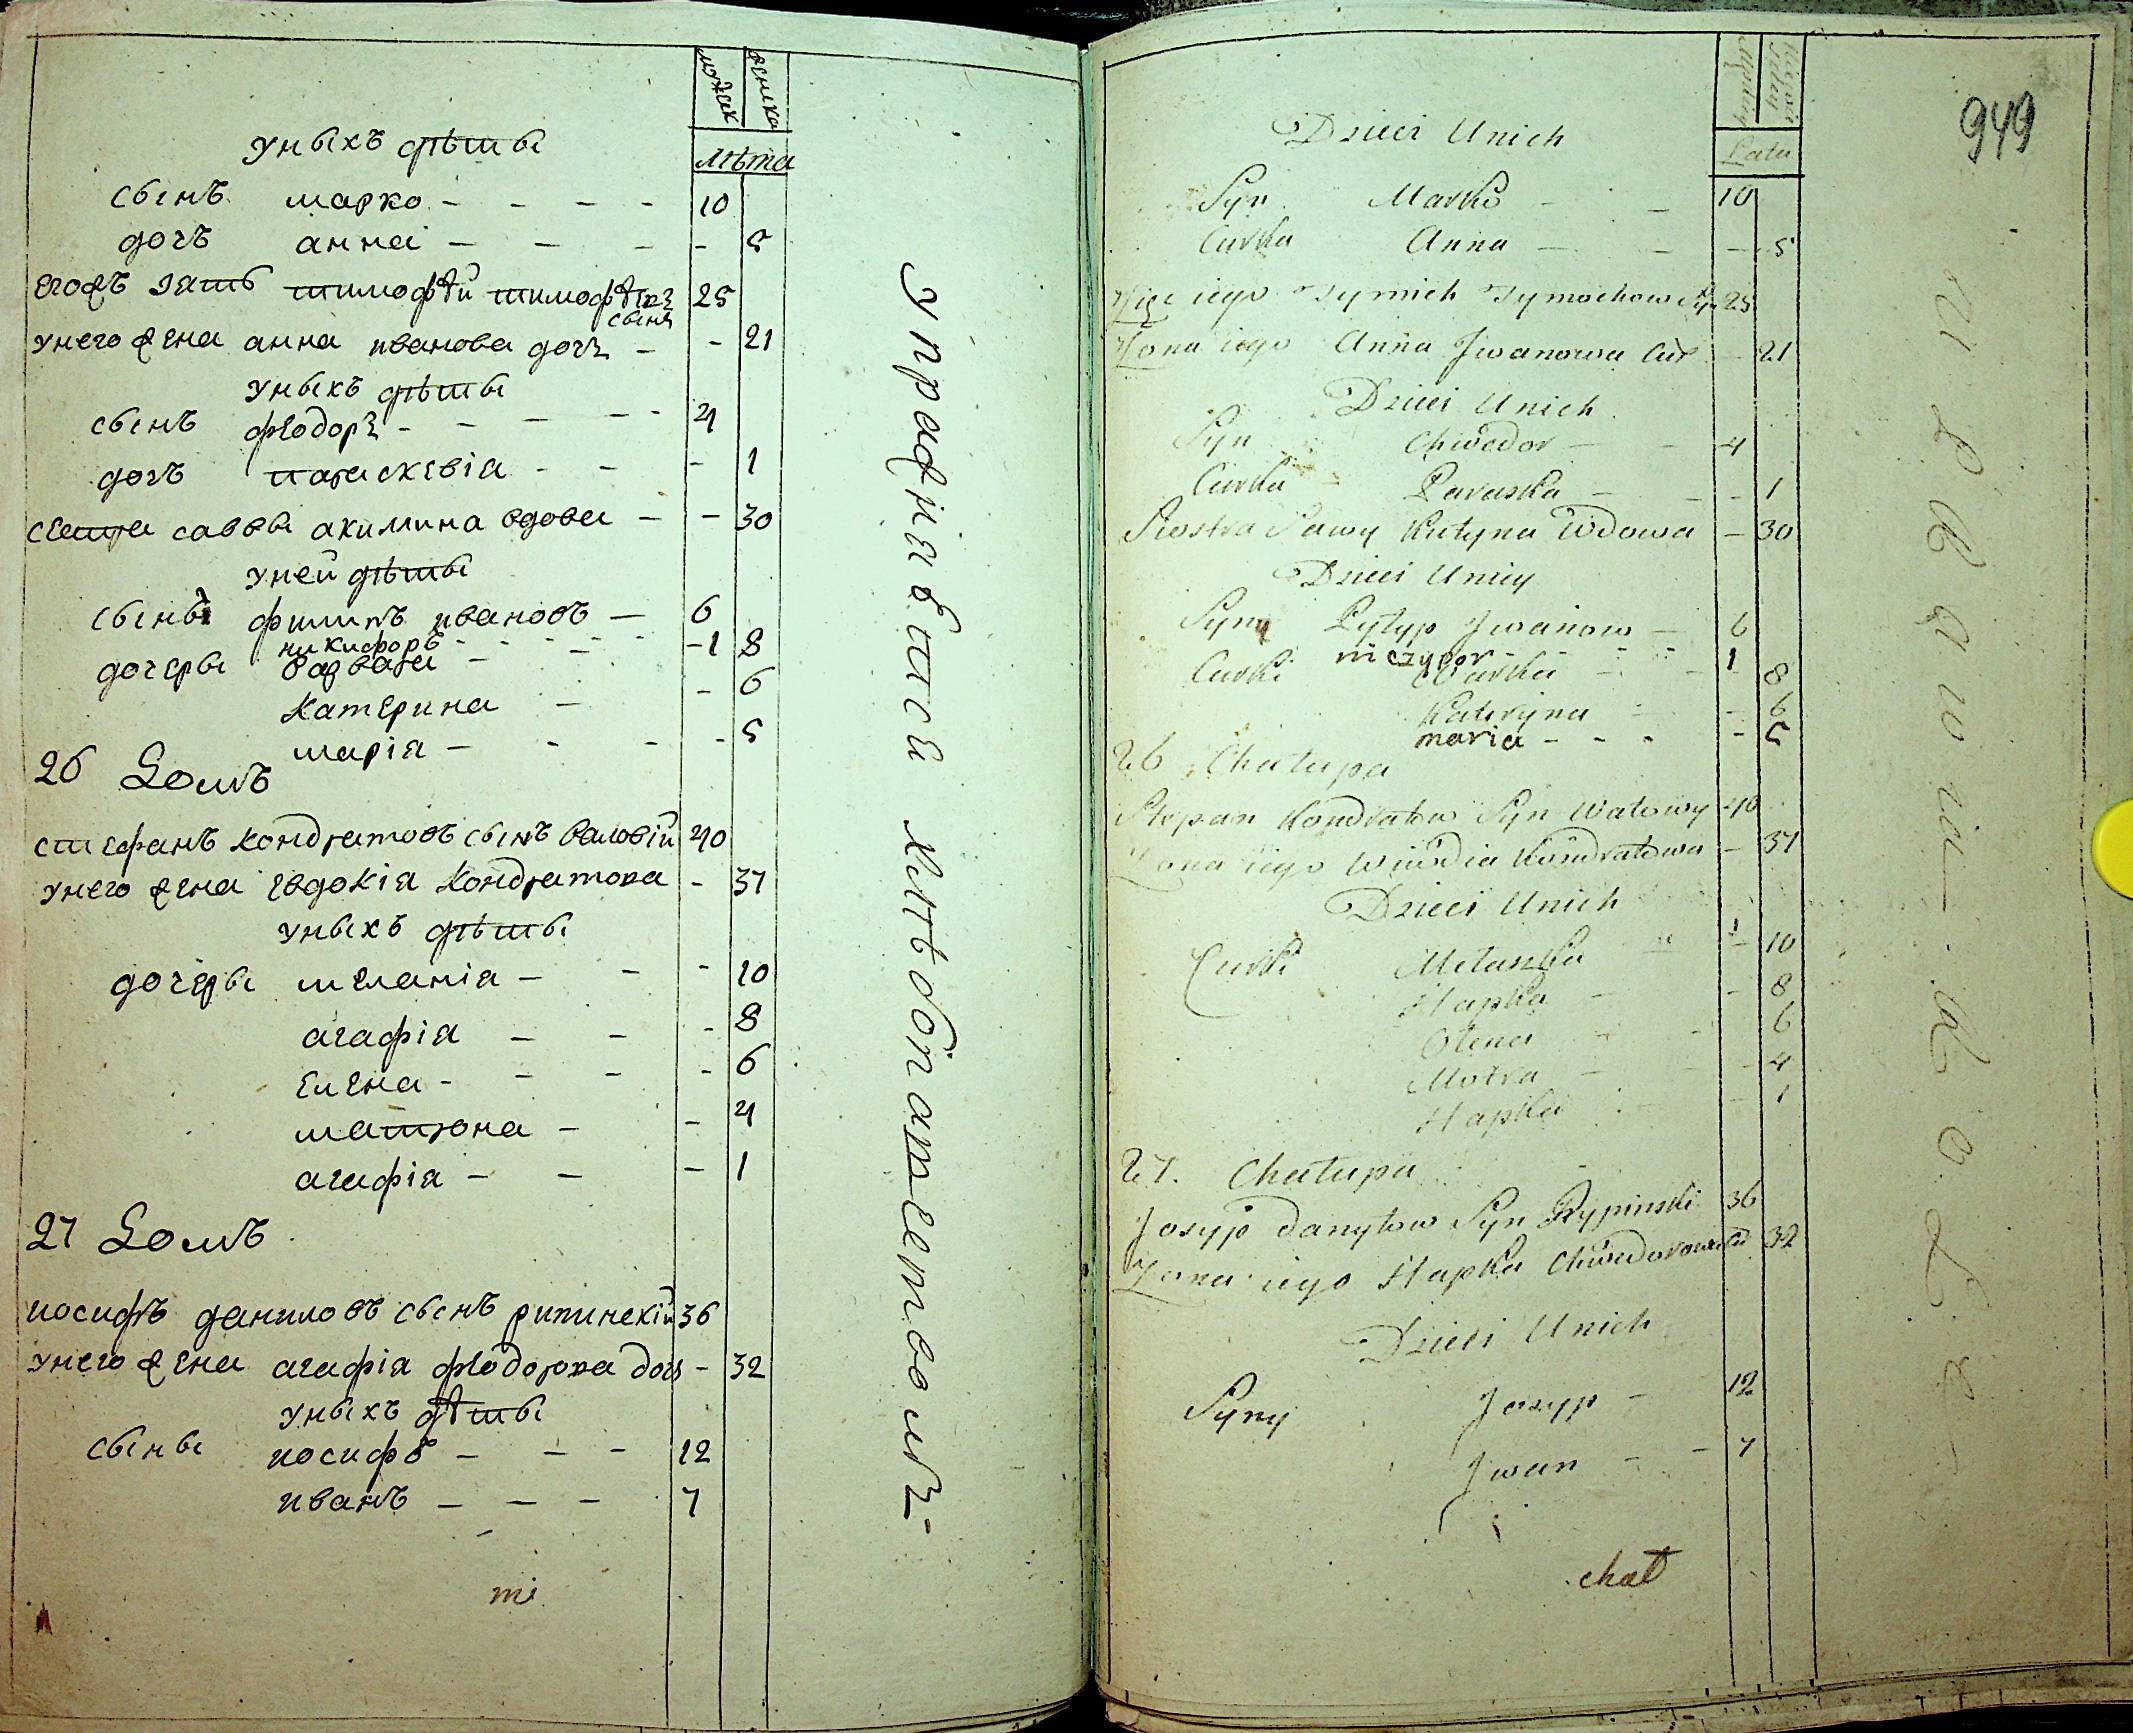 мужск женска
лѣта
уныхъ дѣты
сынъ марко - - - - 10
дочъ анна - - - - 5
егожъ зать тимофѣй тимофѣевъ 25
сынъ
унего жена анна иванова дочъ - - 21
уныхъ дѣты
сынъ феодоръ - - - - - 4
дочъ параскевіа - - - 1
сестра саввы акилина вдова - - 30
уней дѣты
сыны филипъ ивановъ - 6
никифоръ - - - - - 1
дочеры варвара - - 8
катерина - - 6
маріа - - - - 5
26 Домъ
стефанъ кондратовъ сынъ валовій 40
унего жена евдокіа кондратова - 37
уныхъ дѣты
дочеры меланіа - - - 10
агафіа - - - 8
елена - - - - 6
матрона - - 4
агафіа - - - 1
27 Домъ
иосифъ даниловъ сынъ рипинскій 36
унего жена агафіа феодорова доч - 32
уныхъ дѣты
сыны иосифъ - - - 12
иванъ - - - 7
mi
упражняваюся хлѣбопашетвомъ -
949
Latu
Dzieci Unich
Syn Marko - - 10
Curka Anna - - - 5
Zięc iego Tymich Tymochow Syn 25
Zona iego Anna Jwanowa Cur - 21
Dzieci Unich
Syn Chwedor - - 4
Curka Paraska - - - 1
Siostra Sawy Kutyna Wdowa - 30
Dzieci Uniey
Syny Pytyp Jwanow - 6
niczypor - - - - 1
Curki Warka - - 8
Kateryna - - 6
maria - - - - 5
26 Chatupa
Stepan Kondratow Syn Watowy 40
Zona iego Wiwdia Kondratowa - 37
Dzieci Unich
Curki Metanka - - 10
Hapka - - 8
Olena - - 6
Motra - - 4
Hapka - 1
27. Chatupa
Josyp Danytow Syn Rypinski 36
Zona iego Hapka Chwedorowa Cu 32
Dzieci Unich
Syny Josyp - 12
Jwan - - 7
chat